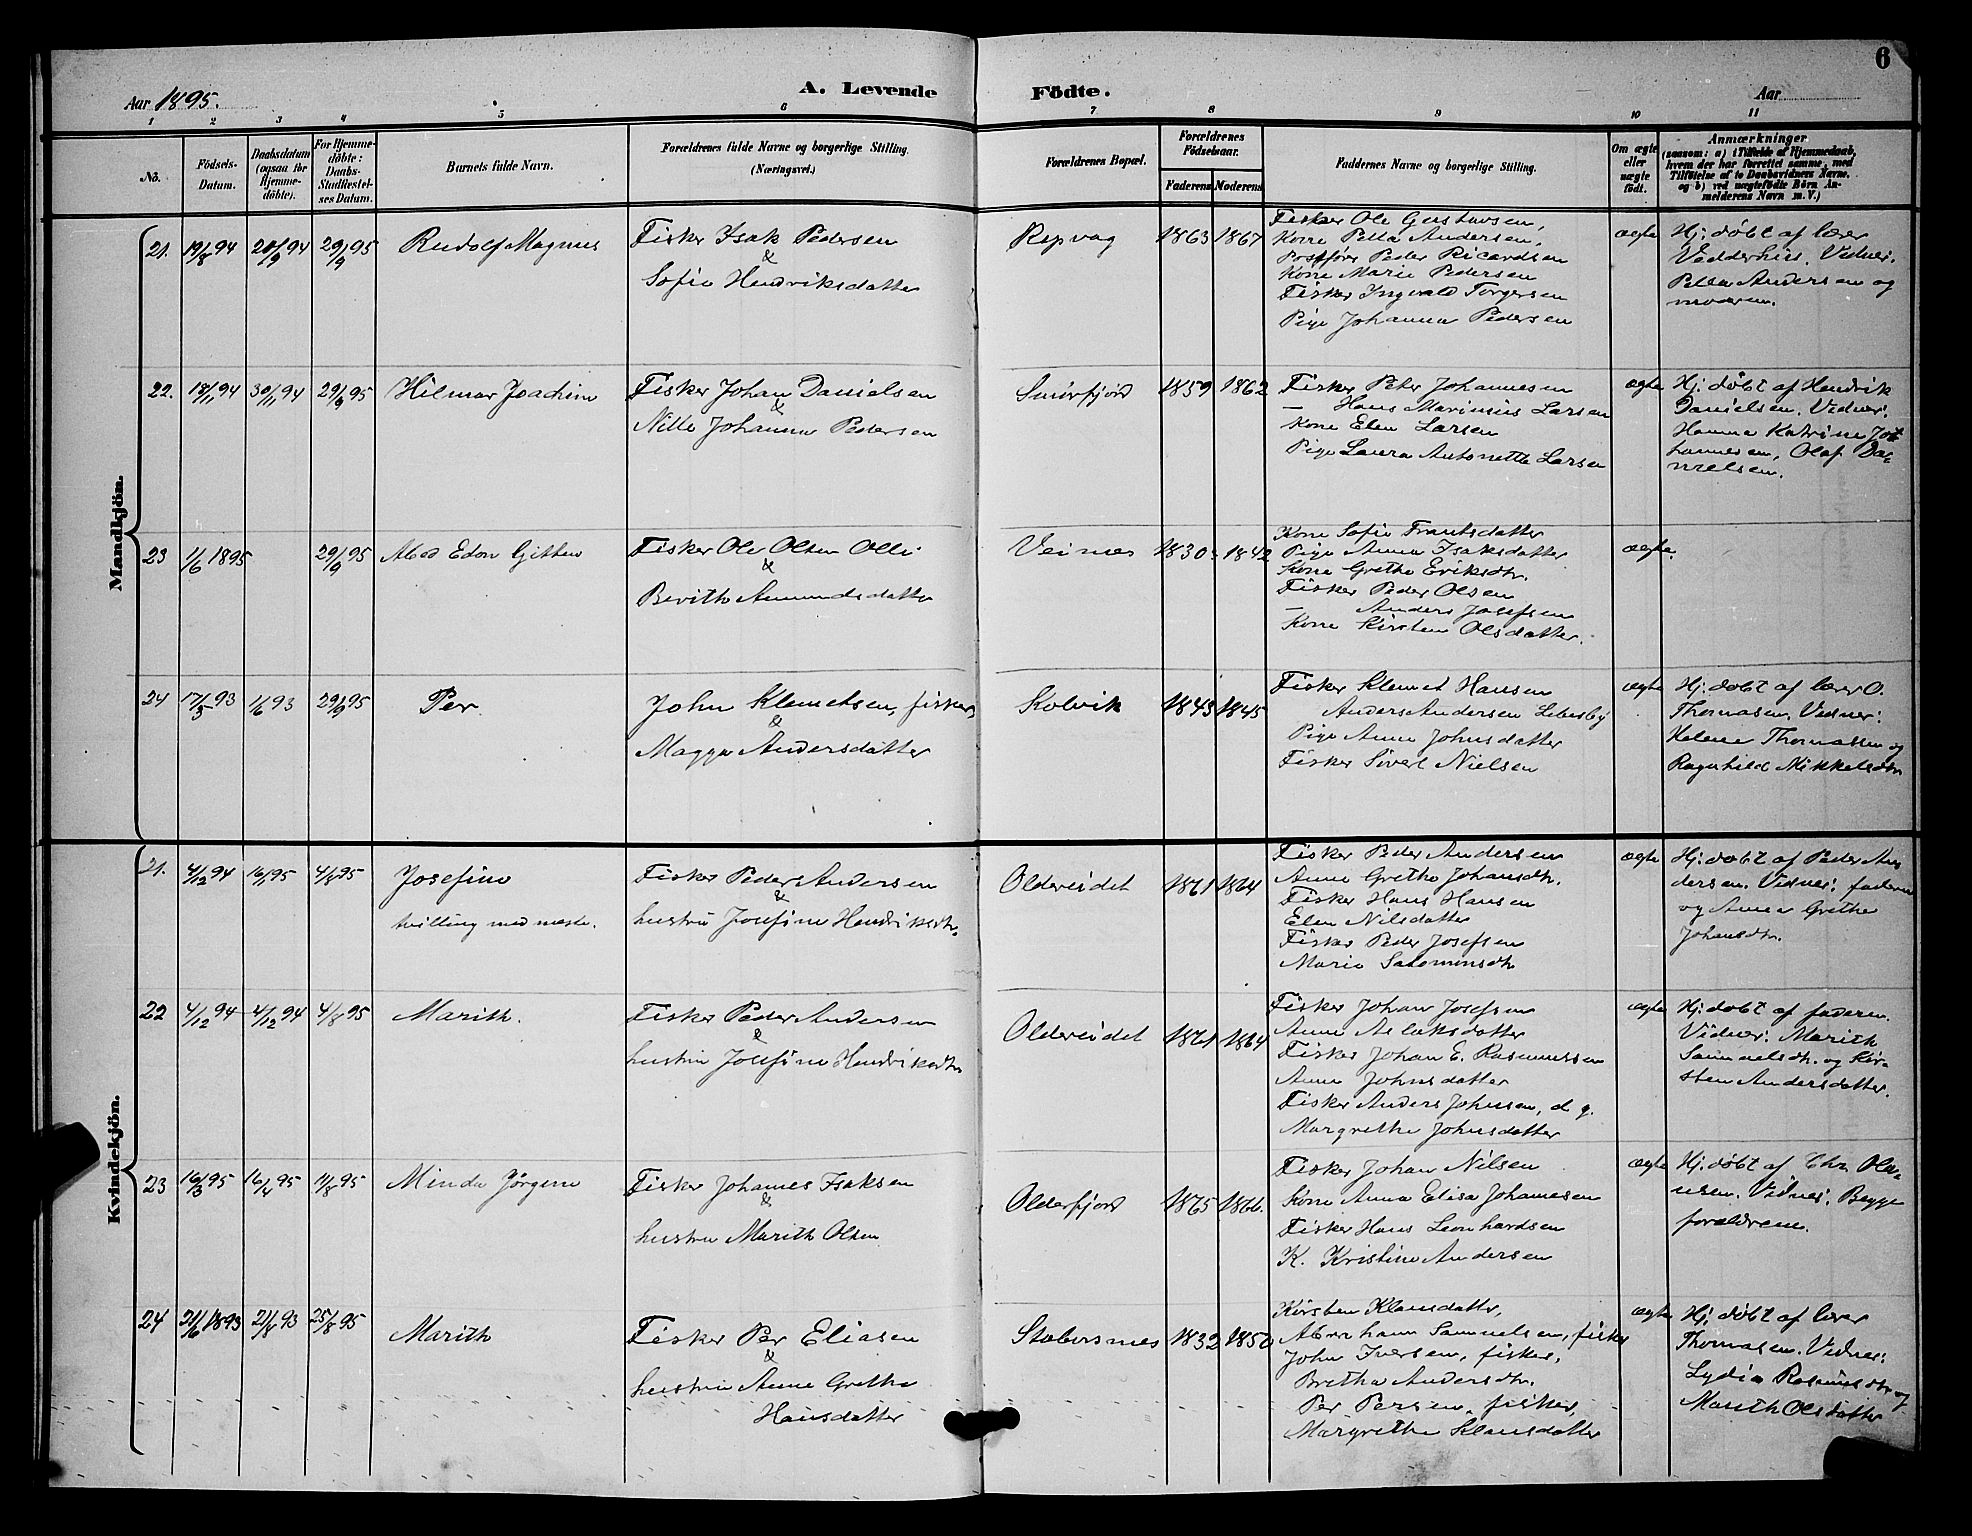 6
Aar 1895. A. Levende Födte. Aar
1 2 3 4 5 6 7 8 9 10 11
No. Födsels-Datum. Daabsdatum (ogsaa for Hjemmedöbte). For Hjemmedöbte: Daabs-Stadfæstelses Datum. Barnets fulde Navn. Forældrenes fulde Navne og borgerlige Stilling. (Næringsvei.) Forældrenes Bopæl. Forældrenes Födselsaar. Faderens Moderens Faddernes Navne og borgerlige Stilling. Om ægte eller uægte födt. Anmærkninger (saasom: a) i Tilfælde af Hjemmedaab, hvem der har forrettet samme, med Tilföielse af to Daabsvidners Navne, og b) ved uægtefödte Börn Anmelderens Navn m. V.)
Mandkjön.
21. 19/8 94 20/9 94 29/9 95 Rudolf Magnus
Fisker Isak Pedersen
&
Sofie Hendriksdatter
Repvag 1863 1867
Fisker Ole Gustavsen,
Kone Pella Andersen,
Postförer Peder Ricardsen
Kone Marie Pedersen
Fisker Ingvald Torgersen
Pige Johanna Pedersen
ægte
Hj: döbt af lærer
Vidner:
Pella Andersen og
moderen.
22. 18/1 94 30/11 94 29/9 95 Hilmar Joachim
Fisker Johan Danielsen
&
Nille Johanna Pedersen
Smörfjord 1859 1862
Fisker Peter Johannesen
— Hans Marinius Larsen
Kone Elen Larsen
Pige Laura Antonette Larsen
ægte
Hj: döbt af Hendrik
Danielsen. Vidner:
Hanna Katrine Jo-
hannesen, Olaf Da-
nielsen.
23 1/6 1895 29/9 95 Edon
Fisker Ole Olsen Olli
&
Berith Amundsdatter
Veines 1830 1842
Kone Sofie Frantsdatter
Pige Anna Isaksdatter
Kone Grethe Eriksdtr.
Fisker Peder Olsen
— Anders Josefsen
Kone Kirsten Olsdatter.
ægte.
24 17/5 93 1/6 93 29/9 95 Per
John Klemetsen, fisker,
&
Magga Andersdatter
Kolvik 1843 1845
Fisker Klemet Hansen
Anders Andersen Lebesby
Pige Anne Johnsdatter
Fisker Siverl Nielsen
ægte
Hj: döbt af lærer O.
Thomasen. Vidner:
Helene Thomassen og
Ragnhild Mikkelsdtr
Kvindekjön.
21. 4/12 94 16/1 95 4/8 95 Josefine
tvilling med næste.
Fisker Peder Andersen
&
hustru Josefine Hendriksdtr.
Oldereidet 1861 1864
Fisker Peder Andersen
Anne Grethe Johansdtr.
Fisker Hans Hansen
Elen Nilsdatter
Fisker Peder Josefsen
Marie Salomonsdtr
ægte
Hj: döbt af Peder An-
dersen. Vidner: faderen
og Anna Grethe
Johansdtr.
22 4/12 94 4/12 94 4/8 95 Marith.
Fisker Peder Andersen
&
hustru Josefine Hendriksdtr
Oldereidet 1861 1864
Fisker Johan Josefsen
Anne Aslaksdatter
Fisker Johan E. Rasmussen
Anne Johnsdatter
Fisker Anders Johnsen, d. y.
Margrethe Johnsdatter
ægte
Hj: döbt af faderen.
Vidner: Marith
Samuelsdtr. og Kir-
sten Andersdatter.
23 16/3 95 16/4 95 11/8 95 Minda Jörgine
Fisker Johannes Isaksen
&
hustru Marith Olsen
Olderfjord 1865 1866.
Fisker Johan Nilsen
Kone Anna Elisa Johannesen
Fisker Hans Leonhardsen
K. Kristine Andersen
ægte
Hj: döbt af Chr. Ola-
usen. Vidner: Begge
forældrene.
24 21/6 1893 21/8 93 25/8 95 Marith
Fisker Per Eliasen
&
hustru Anne Grethe
Hansdatter
Stabursnes 1832 1850
Kirsten Klausdatter,
Abraham Samuelsen, fisker
John Iversen, fisker,
Bretha Andersdtr.
Per Persen, fisker,
Margrethe Klausdatter
ægte
Hj: döbt af lærer
Thomasen. Vidner:
Lydia Rasmusdtr og
Marith Olsdatter